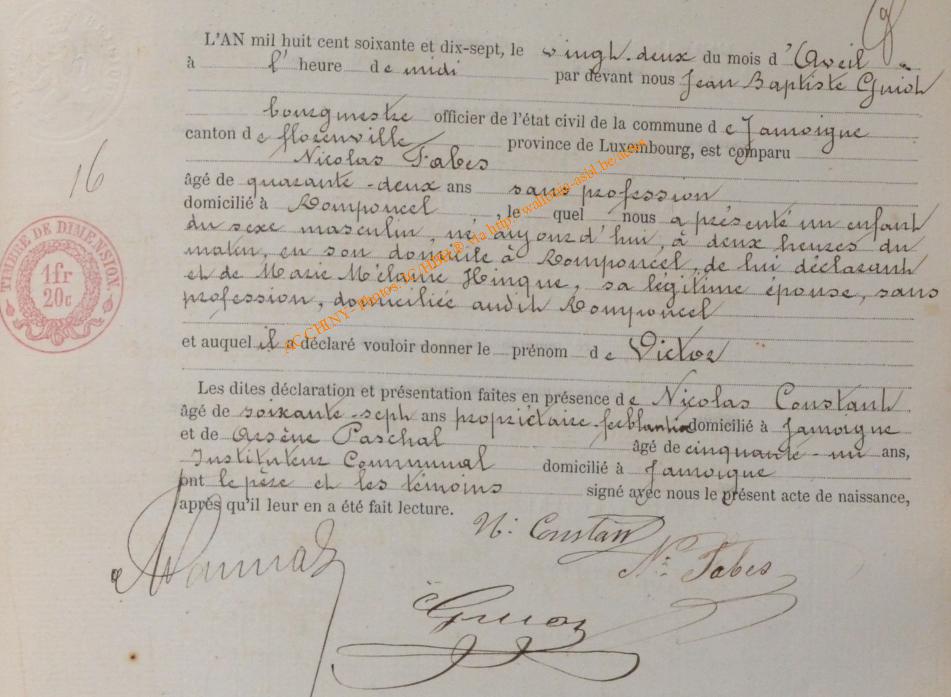 L'AN mil huit cent soixante et dix-sept, le vingt-deux du mois d'Avril
à l'heure de midi par devant nous Jean Baptiste Guiot
bourgmestre officier de l'état civil de la commune de Jamoigne
canton de florenville province de Luxembourg, est comparu
Nicolas Fabes
16
âgé de quarante-deux ans sans profession
domicilié à Romponcel, lequel nous a présenté un enfant
du sexe masculin, né aujourd'hui, à deux heures du
matin, en son domicile à Romponcel, de lui déclarant
et de Marie Mélanie Hinque, sa légitime épouse, sans
profession, domiciliée audit Romponcel
TIMBRE DE DIMENSION.
1fr
20c
et auquel il a déclaré vouloir donner le prénom de Victor
Les dites déclaration et présentation faites en présence de Nicolas Constant
âgé de soixante-sept ans propriétaire ferblantier domicilié à Jamoigne
et de Arsène Paschal âgé de cinquante-un ans,
Instituteur Communal domicilié à Jamoigne
ont le père et les témoins signé avec nous le présent acte de naissance,
après qu'il leur en a été fait lecture.
N. Constant
N. Fabes
Guiot